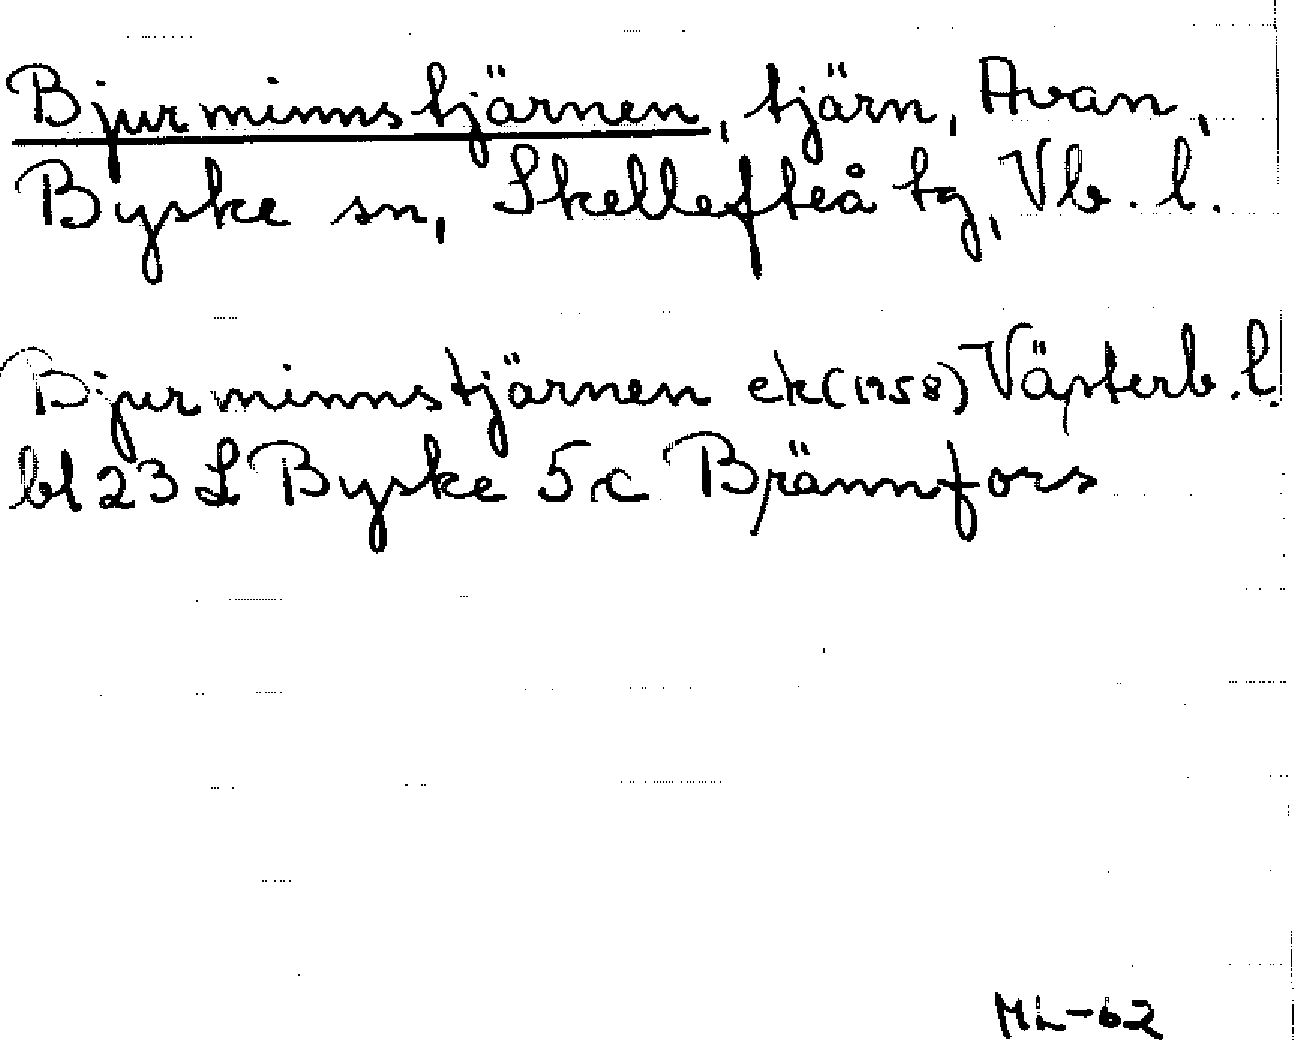 Bjurminnstjärnen, tjärn, Avan,
Byske sn, Skellefteå tg, Vb. l.
Bjurminnstjärnen ek (1958) Västerb. l.
bl 23 L Byske 5c Brännfors
ML-62